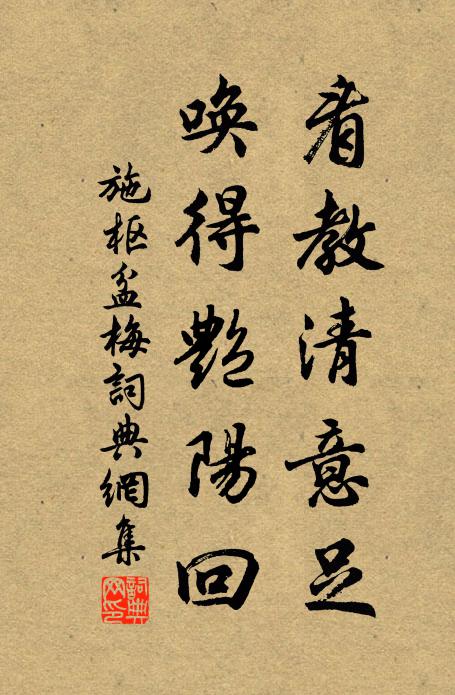 看教清意足
喚得艷陽回
施枢盆梅詞典網集
詞典網印